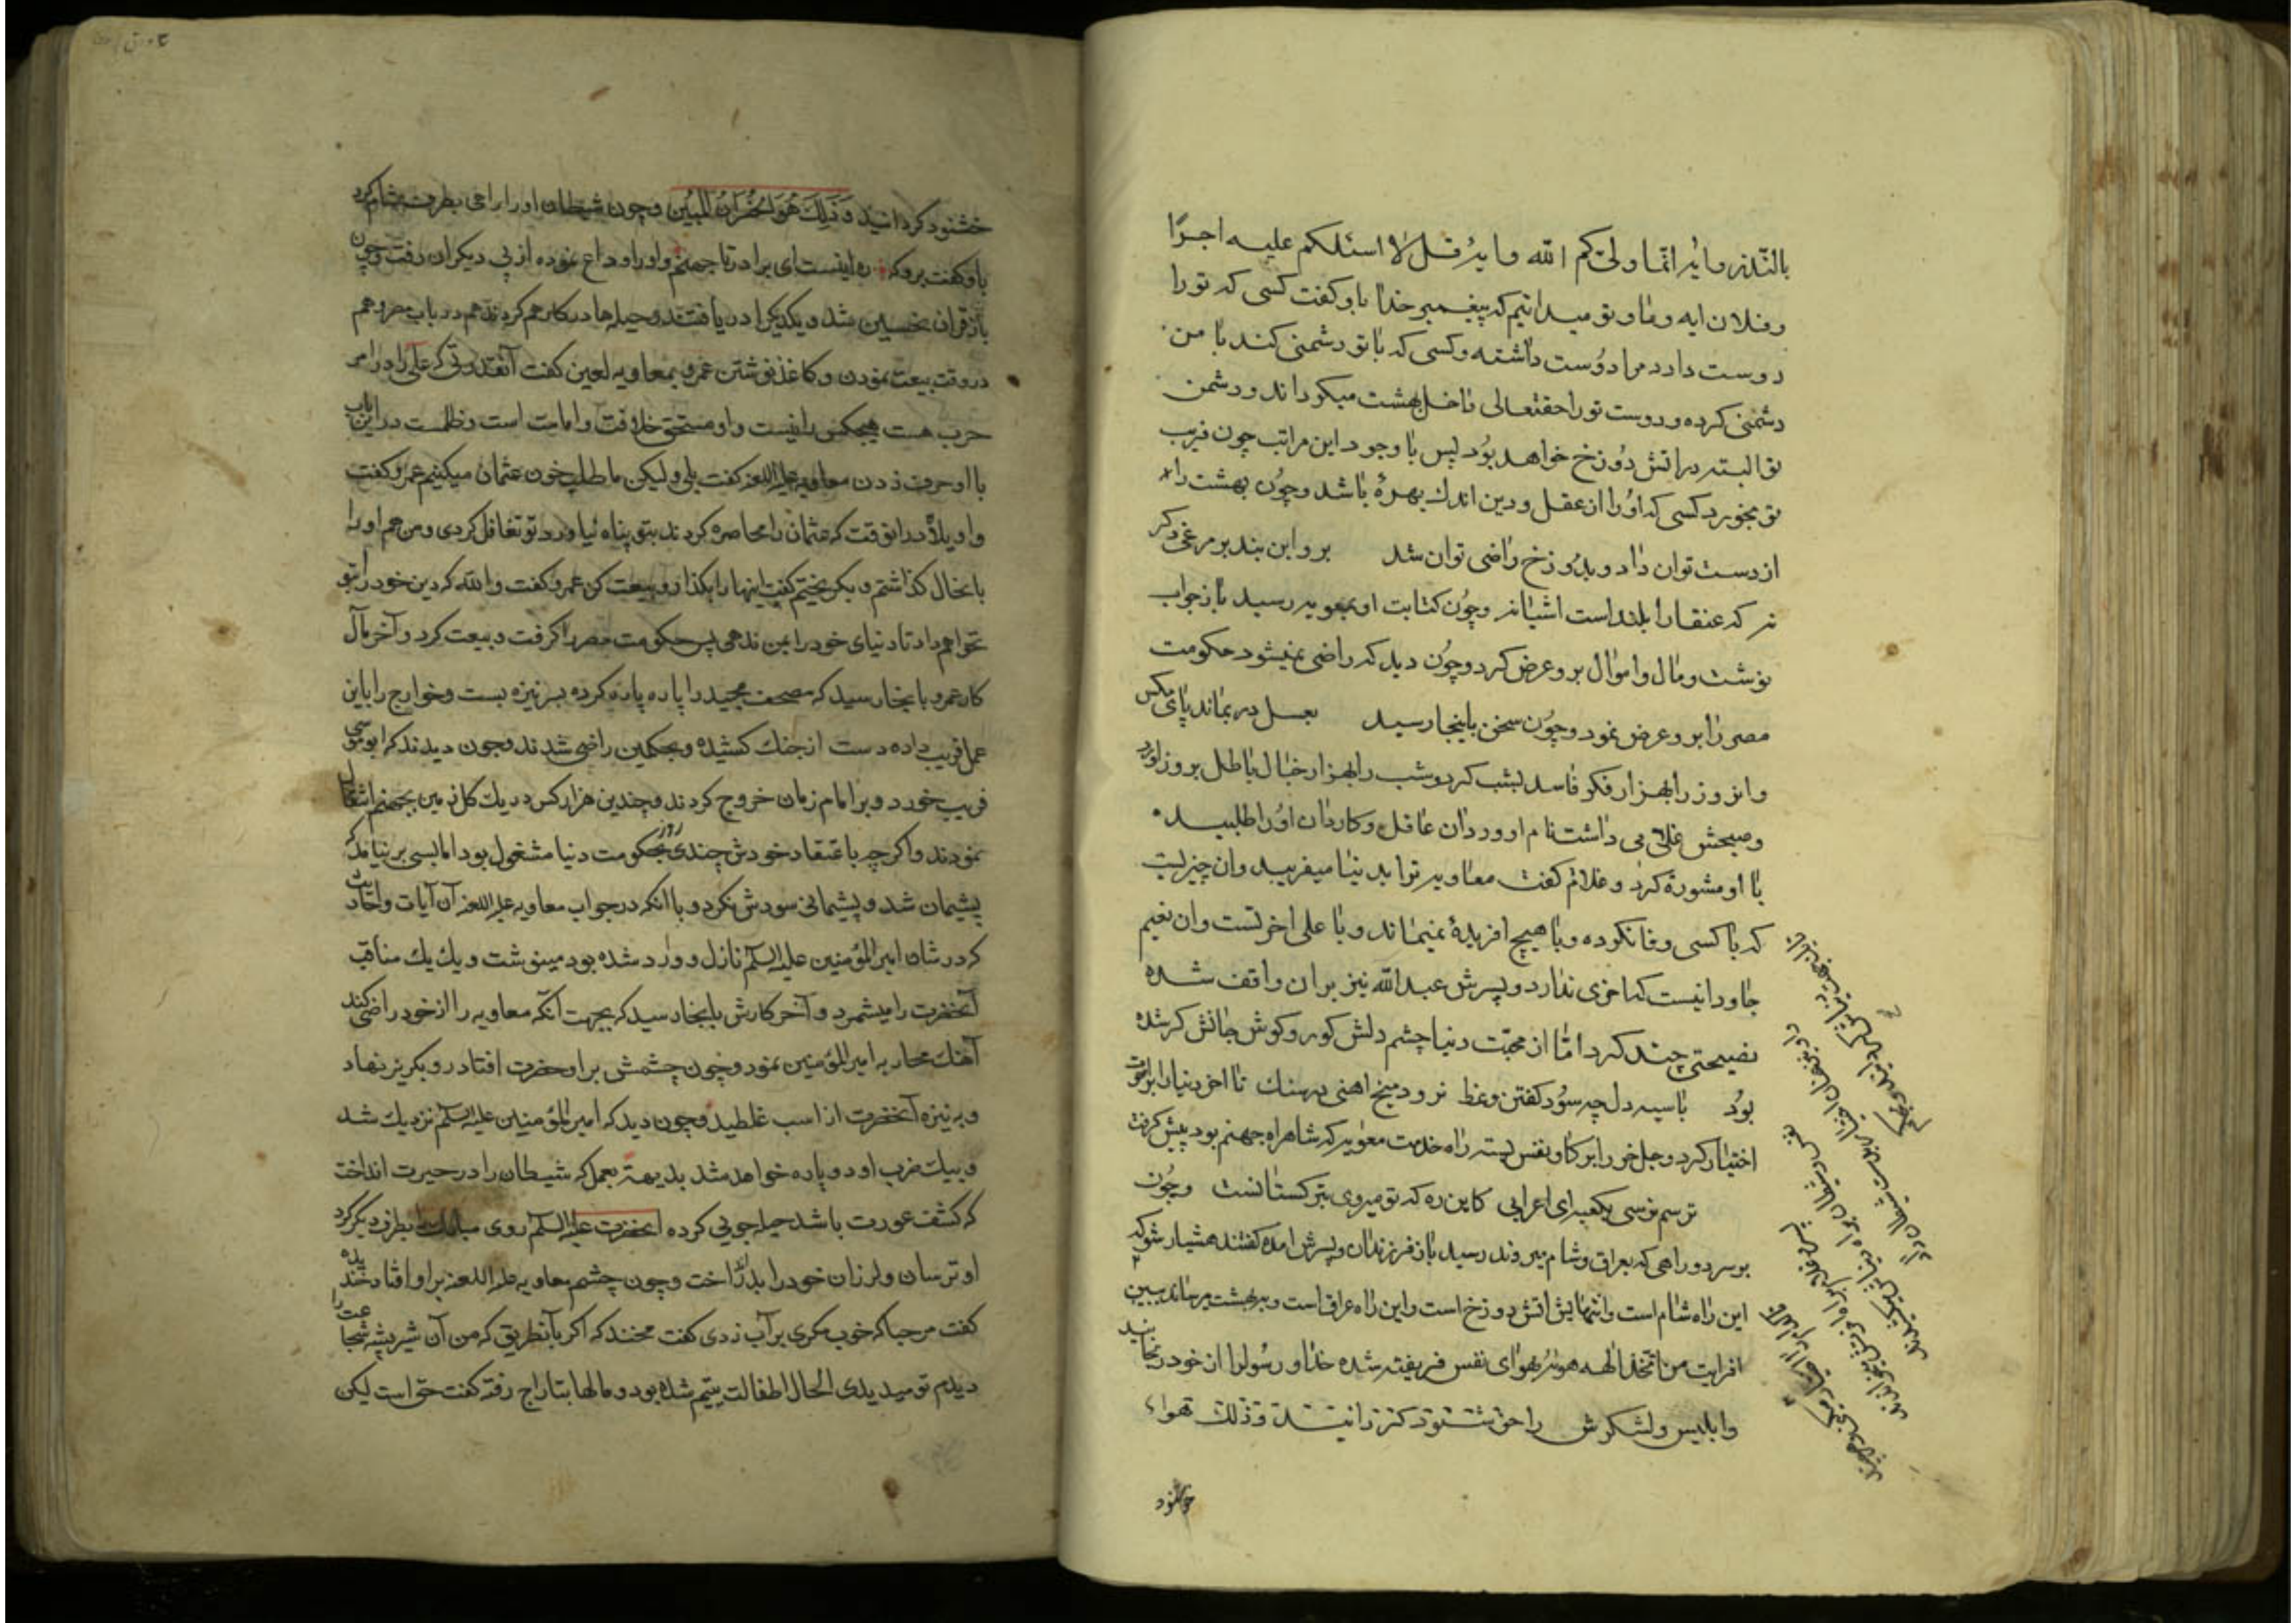 بالنّذر وآیهٔ انّما ولیّکم الله وآیهٔ قل لا اسئلکم علیه اجرًا
وفلان ایه وما وتو میدانیم که پیغمبر خدا باو کفت کسی که تو را
دوست دارد مرا دوست داشته وکسی که با تو دشمنی کند با من
دشمنی کرده ودوست تو را حقتعالی داخل بهشت میکرداند ودشمن
تو البته در اتش دوزخ خواهد بود پس با وجود این مراتب چون فریب
تو بخورد کسی که او را از عقل ودین اندك بهرهٔ باشد وچون بهشت را
از دست توان داد وبدوزخ راضی توان شد برو این بند بر مرغی دکر
نه که عنقا را بلند است اشیانه وچون کتابت او بمعویه رسید باز جواب
نوشت ومال واموال برو عرض کرد وچون دید که راضی نمیشود حکومت
مصر را برو عرض نمود وچون سخن باینجا رسید بعسل در بماند پای مکس
وانروز را بهزار فکر فاسد بشب کرد وشب را بهزار خیال باطل بروز اورد
وصبحش غلامی داشت نام او وردان عاقل وکاردان او را طلبید
با او مشورة کرد وغلام کفت معاویه ترا بدنیا میفریبد وان چیزیست
که با کسی وفا نکرده وبا هیچ افریدهٔ نمیماند وبا علی اخرتست وان نعیم
جاودانیست که اخری ندارد وپسرش عبدالله نیز بران واقف شده
نصیحتی چند کرد امّا از محبّت دنیا چشم دلش کور وکوش جانش کر شده
بود با سیه دل چه سود کفتن وعظ نرود میخ اهنی در سنك تا اخر دنیا را بر اخرت
اختیار کرد وجل خر را بر کاو نفس بسته راه خدمت معویه که شاهراه جهنم بود پیش کرفت
ترسم نرسی بکعبه ای اعرابی کاین ره که تو میروی بترکستانست وچون
بر سر دو راهی که بعراق وشام میروند رسید باز فرزندان وپسرش امده کفتند هشیار شو که
این راه شام است وانتهایش اتش دوزخ است واین راه عراق است وببهشت میرساند ببین
افرایت من اتّخذ الهه هویه بهوای نفس فریفته شده خدا ورسول را از خود رنجانید
وابلیس ولشکرش را خوشنود کردانید وذلك هو
خوشنود
خشنود کردانید وَذلِكَ هُوَ الخُسْرانُ المُبین وچون شیطان او را راهی بطرف شام کرد
باو کفت برو که ره اینست ای برادر تا جهنم واو را وداع نموده از پی دیکران رفت وچون
باز قران نحسین شد ویکدیکر را دریافتند وحیله‌ها در کار هم کردند هم در باب مصر وهم
در وقت بیعت نمودن وکاغذ نوشتن عمرو بمعاویه لعین کفت آنقدرتی که علی را در امر
حرب هست هیچکس را نیست واو مستحق خلافت وامامت است وظلمست در این باب
با او حرف زدن معاویه علیه اللعنه کفت بلی ولیکن ما طلب خون عثمان میکنیم عمرو کفت
واویلاه درانوقت که عثمان را محاصره کردند بتو پناه بیاورد تو تغافل کردی ومن هم او را
بانحال کذاشتم وبکریختم کفت اینها را بکذار وبیعت کن عمرو کفت والله که دین خود را بتو
نخواهم داد تا دنیای خود را بمن ندهی پس حکومت مصر را کرفت وبیعت کرد وآخر مآل
کار عمرو بانجا رسید که مصحف مجید را پاره پاره کرده بر نیزه بست وخوارج را باین
عمل فریب داده دست از جنك کشیده وبحکمین راضی شدند وچون دیدند که ابو موسی
فریب خورد وبر امام زمان خروج کردند وچندین هزار کس در یك کل زمین بجهنم انتقال
نمودند واکرچه باعتقاد خودش چند روزی بحکومت دنیا مشغول بود اما بسی بر نیامد که
پشیمان شد وپشیمانی سودش نکرد وبا انکه در جواب معاویه علیه اللعنه آن آیات واحادیث
که در شان امیرالمؤمنین علیه السلم نازل ووارد شده بود مینوشت ویك یك مناقب
آنحضرت را میشمرد وآخر کارش بانجا رسید که بجهت آنکه معاویه را از خود راضی کند
آهنك محاربه امیرالمؤمنین نمود وچون چشمش بر اوحضرت افتاد رو بکریز نهاد
وبه نیزه آنحضرت از اسب غلطید وچون دید که امیرالمؤمنین علیه السلم نزدیك شد
وبیك ضرب او دو پاره خواهد شد بدیهة بعملی که شیطان را در حیرت انداخت
که کشف عورت باشد حیله جویی کرده آنحضرت علیه السلم روی مبارك را بطرف دیکر کرد
او ترسان ولرزان خود را بدر انداخت وچون چشم معاویه علیه اللعنه براو افتاد خندیده
کفت مرحبا که خوب مکری بر آب زدی کفت مخند که اکر بآنطریق که من آن شیر بیشه شجاعت را
دیدم تو میدیدی الحال اطفالت یتیم شده بود ومالها بتاراج رفته کفت حق است لیکن